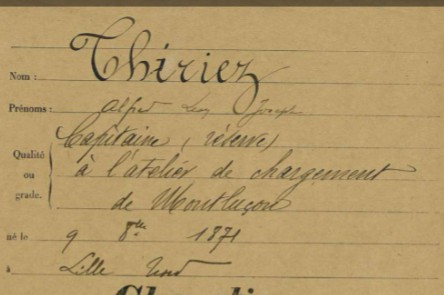 Nom : Thiriez
Prénoms : Alfred Léon Joseph
Capitaine (réserve)
Qualité ou grade. à l'atelier de chargement
de Montluçon
né le 9 8bre 1871
à Lille Nord